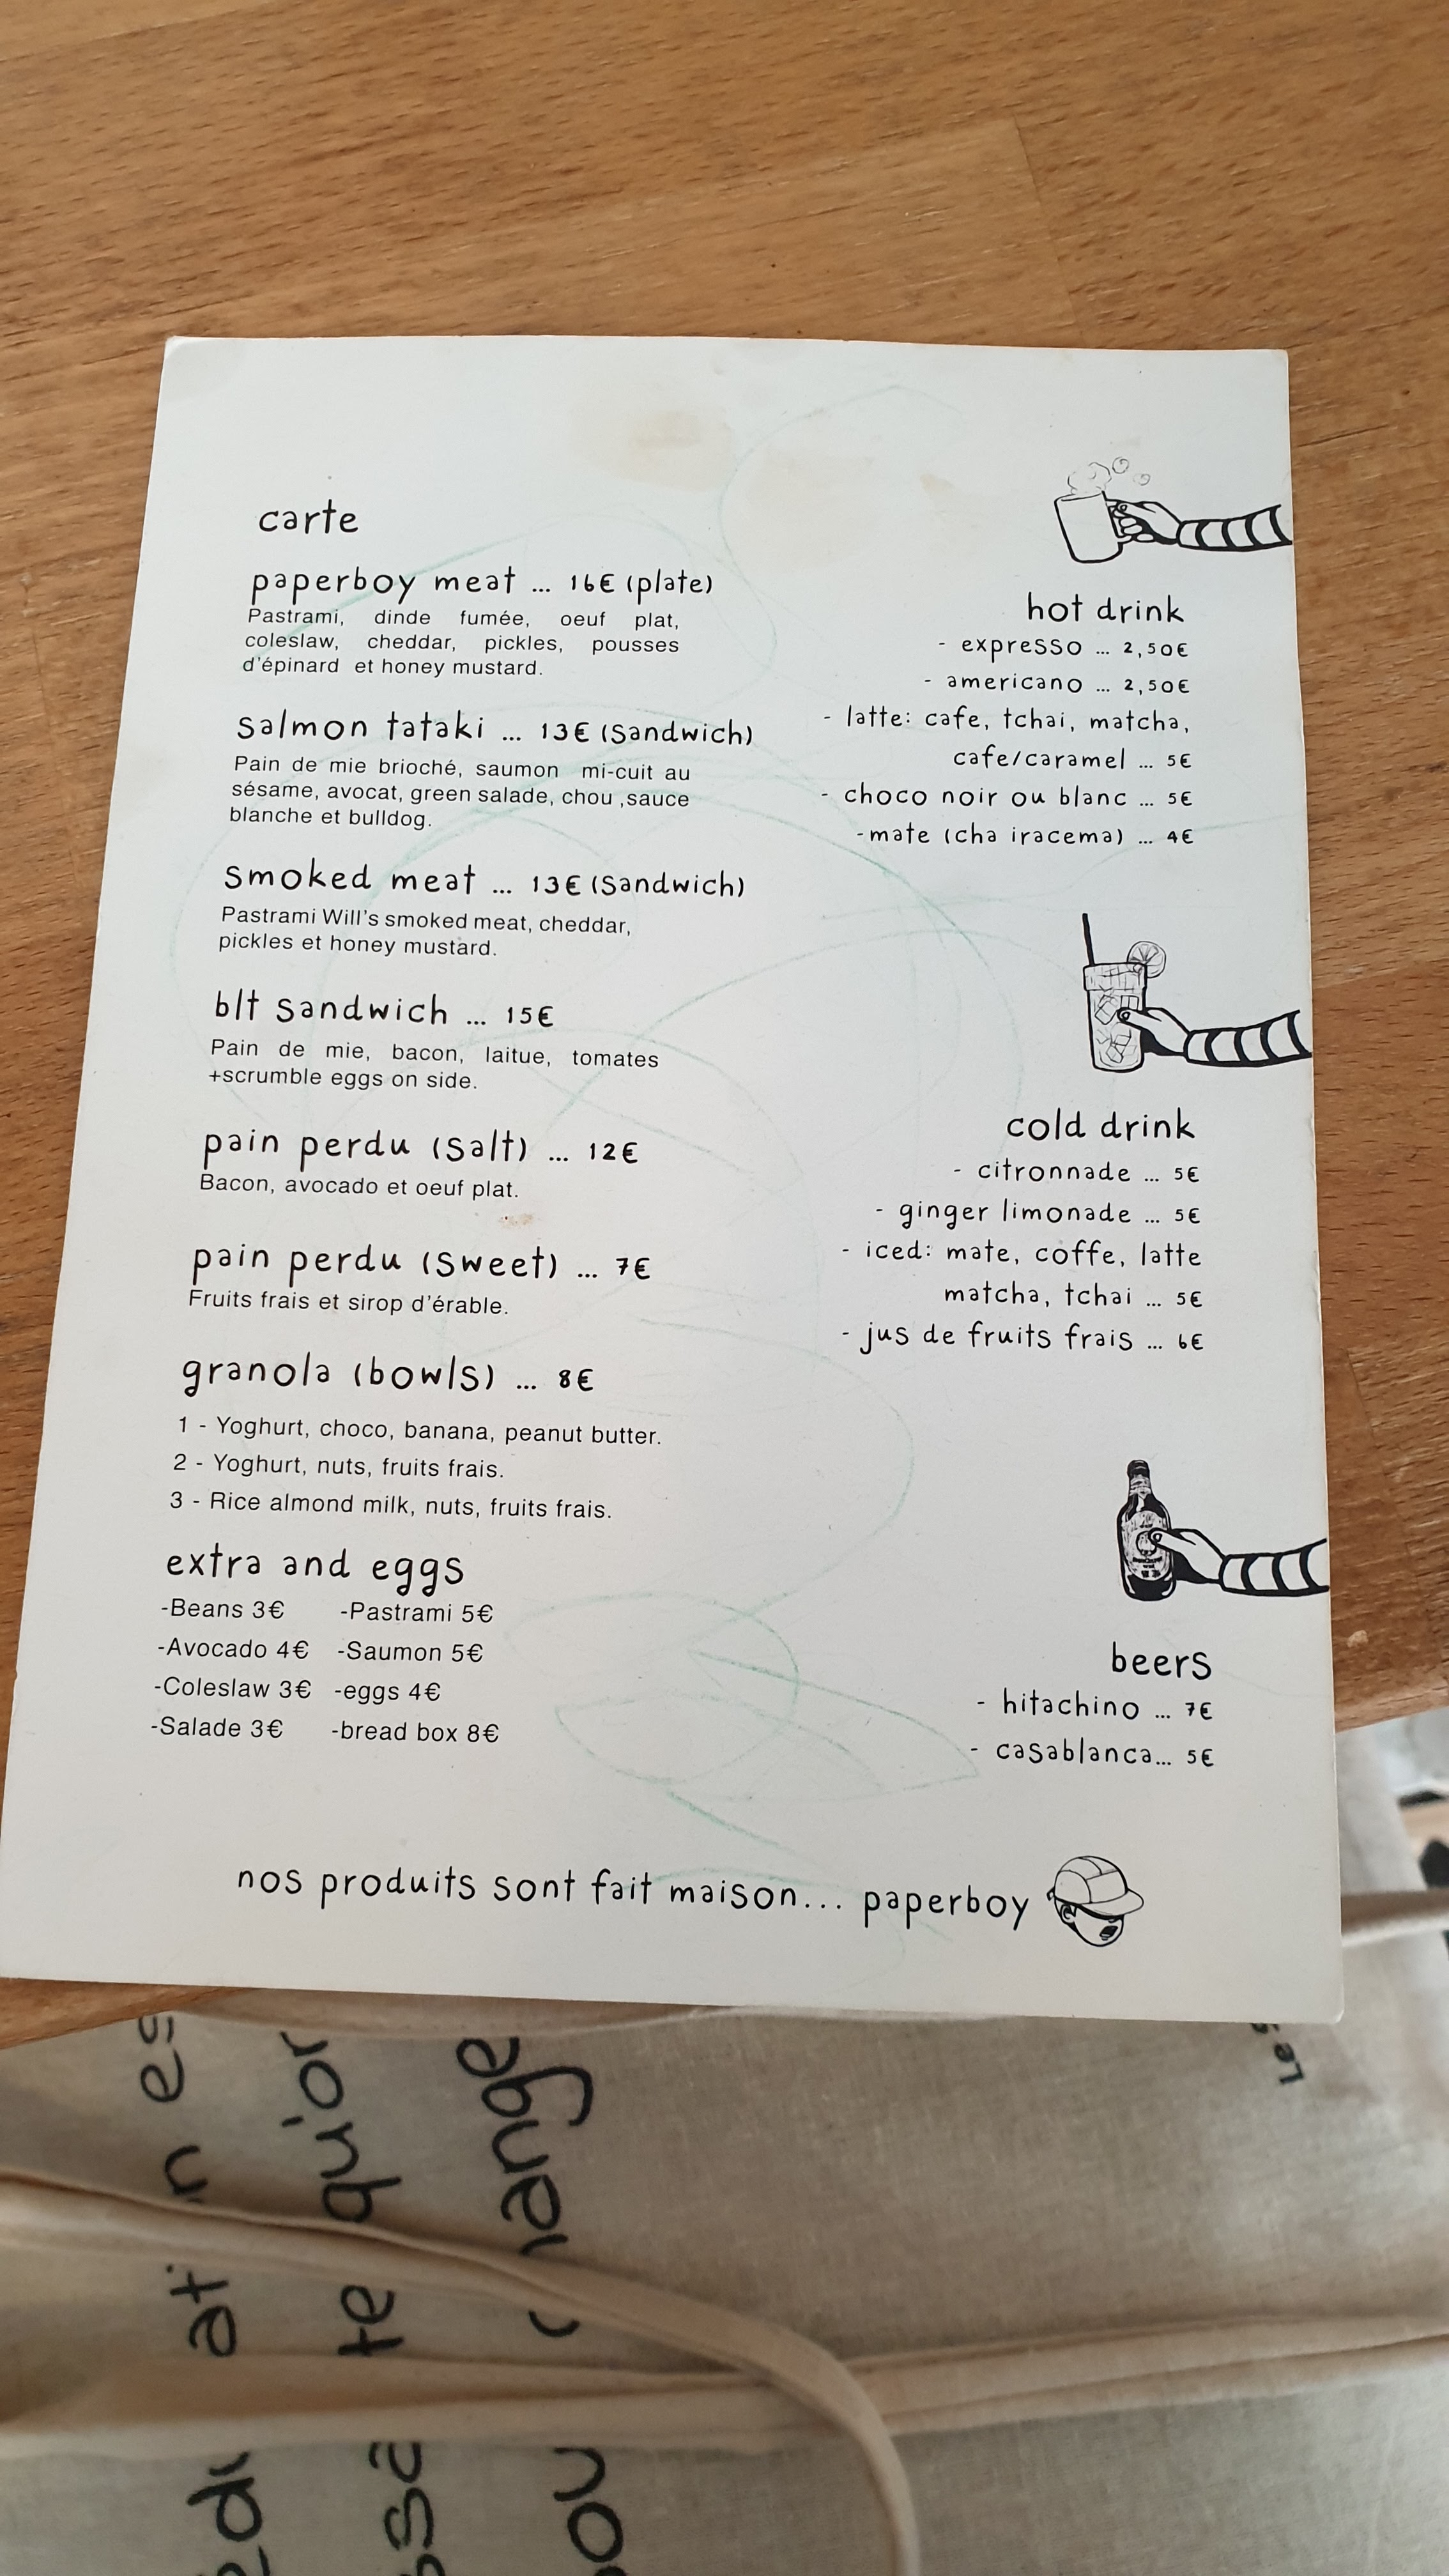 carte
paperboy meat ... 16€ (plate)
Pastrami, dinde fumée, oeuf plat,
coleslaw, cheddar, pickles, pousses
d'épinard et honey mustard.
salmon tataki ... 13€ (sandwich)
Pain de mie brioché, saumon mi-cuit au
sésame, avocat, green salade, chou ,sauce
blanche et bulldog.
smoked meat ... 13€ (sandwich)
Pastrami Will's smoked meat, cheddar,
pickles et honey mustard.
blt sandwich ... 15€
Pain de mie, bacon, laitue, tomates
+scrumble eggs on side.
pain perdu (salt) ... 12€
Bacon, avocado et oeuf plat.
pain perdu (sweet) ... 7€
Fruits frais et sirop d'érable.
granola (bowls) ... 8€
1 - Yoghurt, choco, banana, peanut butter.
2 - Yoghurt, nuts, fruits frais.
3 - Rice almond milk, nuts, fruits frais.
extra and eggs
-Beans 3€ -Pastrami 5€
-Avocado 4€ -Saumon 5€
-Coleslaw 3€ -eggs 4€
-Salade 3€ -bread box 8€
hot drink
- expresso ... 2,50€
- americano ... 2,50€
- latte: cafe, tchai, matcha,
cafe/caramel ... 5€
- choco noir ou blanc ... 5€
-mate (cha iracema) ... 4€
cold drink
- citronnade ... 5€
- ginger limonade ... 5€
- iced: mate, coffe, latte
matcha, tchai ... 5€
- jus de fruits frais ... 6€
beers
- hitachino ... 7€
- casablanca... 5€
nos produits sont fait maison... paperboy